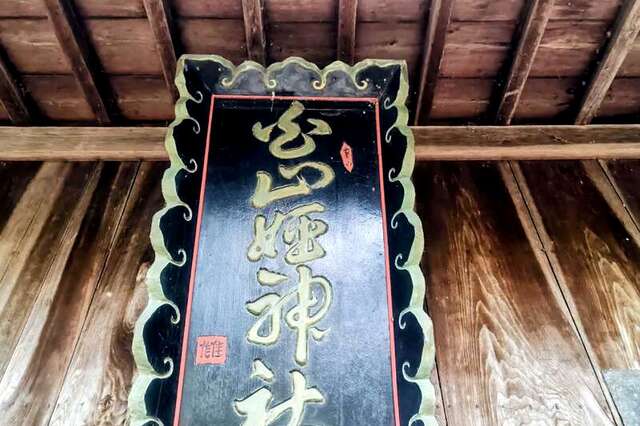 金山姫神社